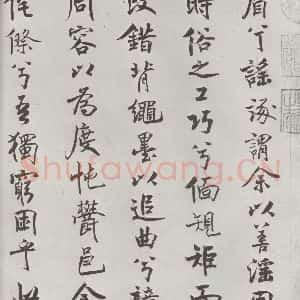 眉兮謠諑謂余以善淫固
時俗之工巧兮偭規矩而
改錯背繩墨以追曲兮
周容以為度忳鬱邑余
侘傺兮吾獨窮困乎此
Shufawang.CN